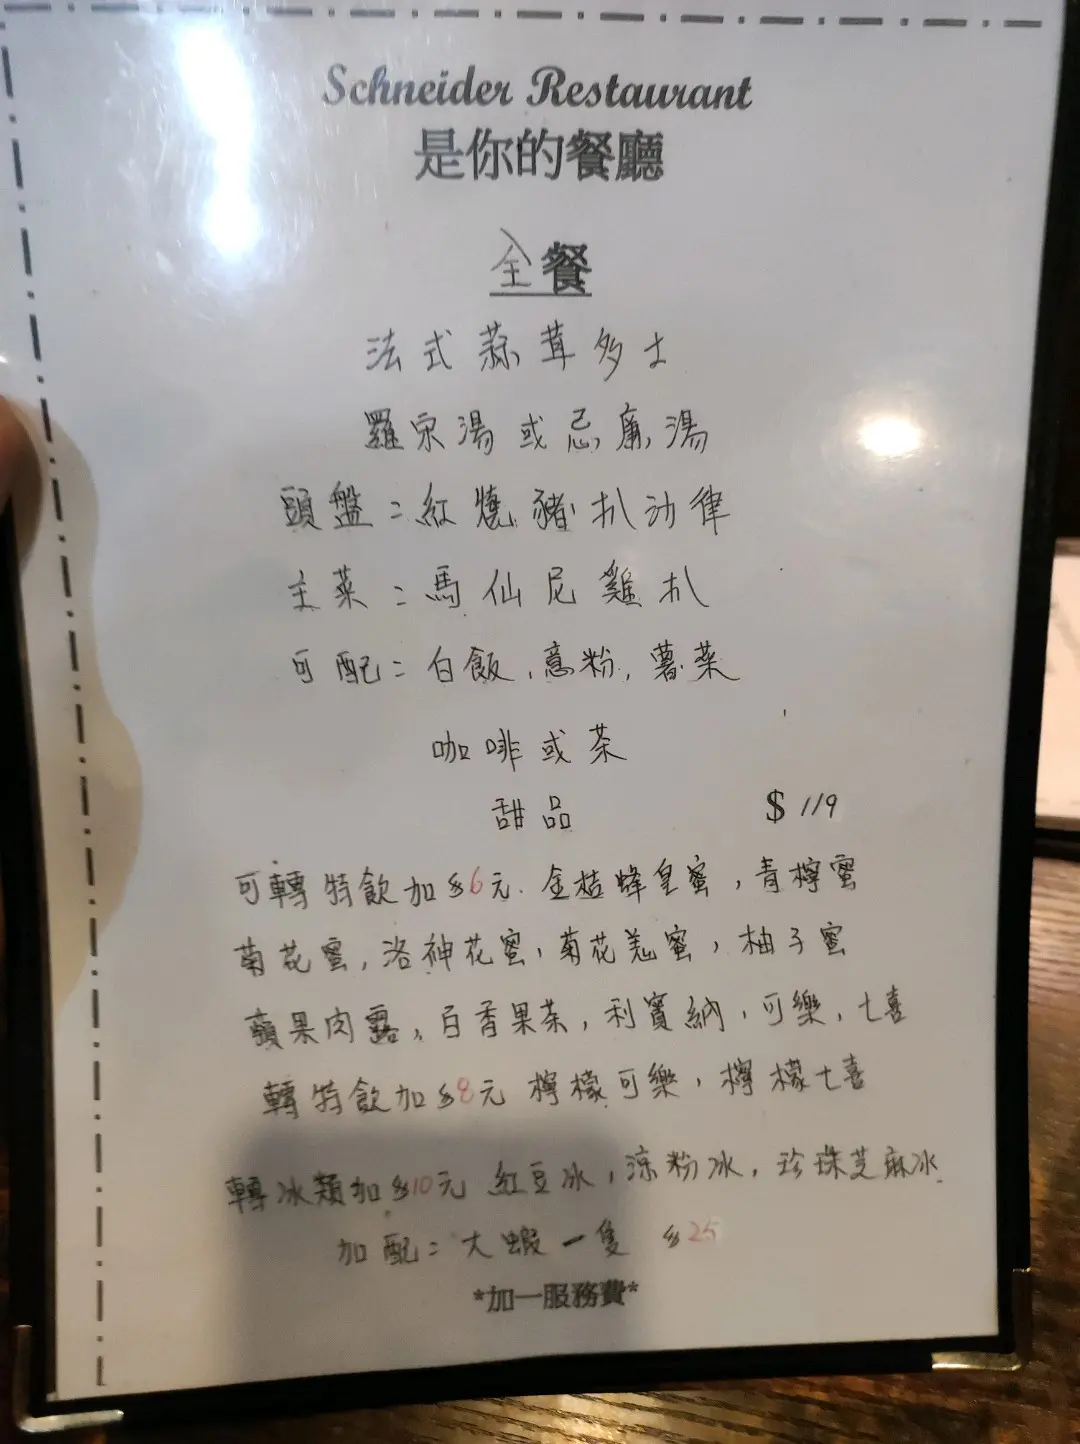 Schneider Restaurant
是你的餐廳
全餐
法式蒜茸多士
羅宋湯或忌廉湯
頭盤：紅燒豬扒沙律
主菜：馬仙尼雞扒
可配：白飯，意粉，薯菜
咖啡或茶
甜品 $119
可轉特飲加$6元．金桔蜂皇蜜，青檸蜜
菊花蜜，洛神花蜜，菊花羗蜜，柚子蜜
蘋果肉露，百香果茶，利賓納，可樂，七喜
轉特飲加$8元 檸檬可樂，檸檬七喜
轉冰類加$10元 紅豆冰，涼粉冰，珍珠芝麻冰
加配：大蝦一隻 $25
*加一服務費*